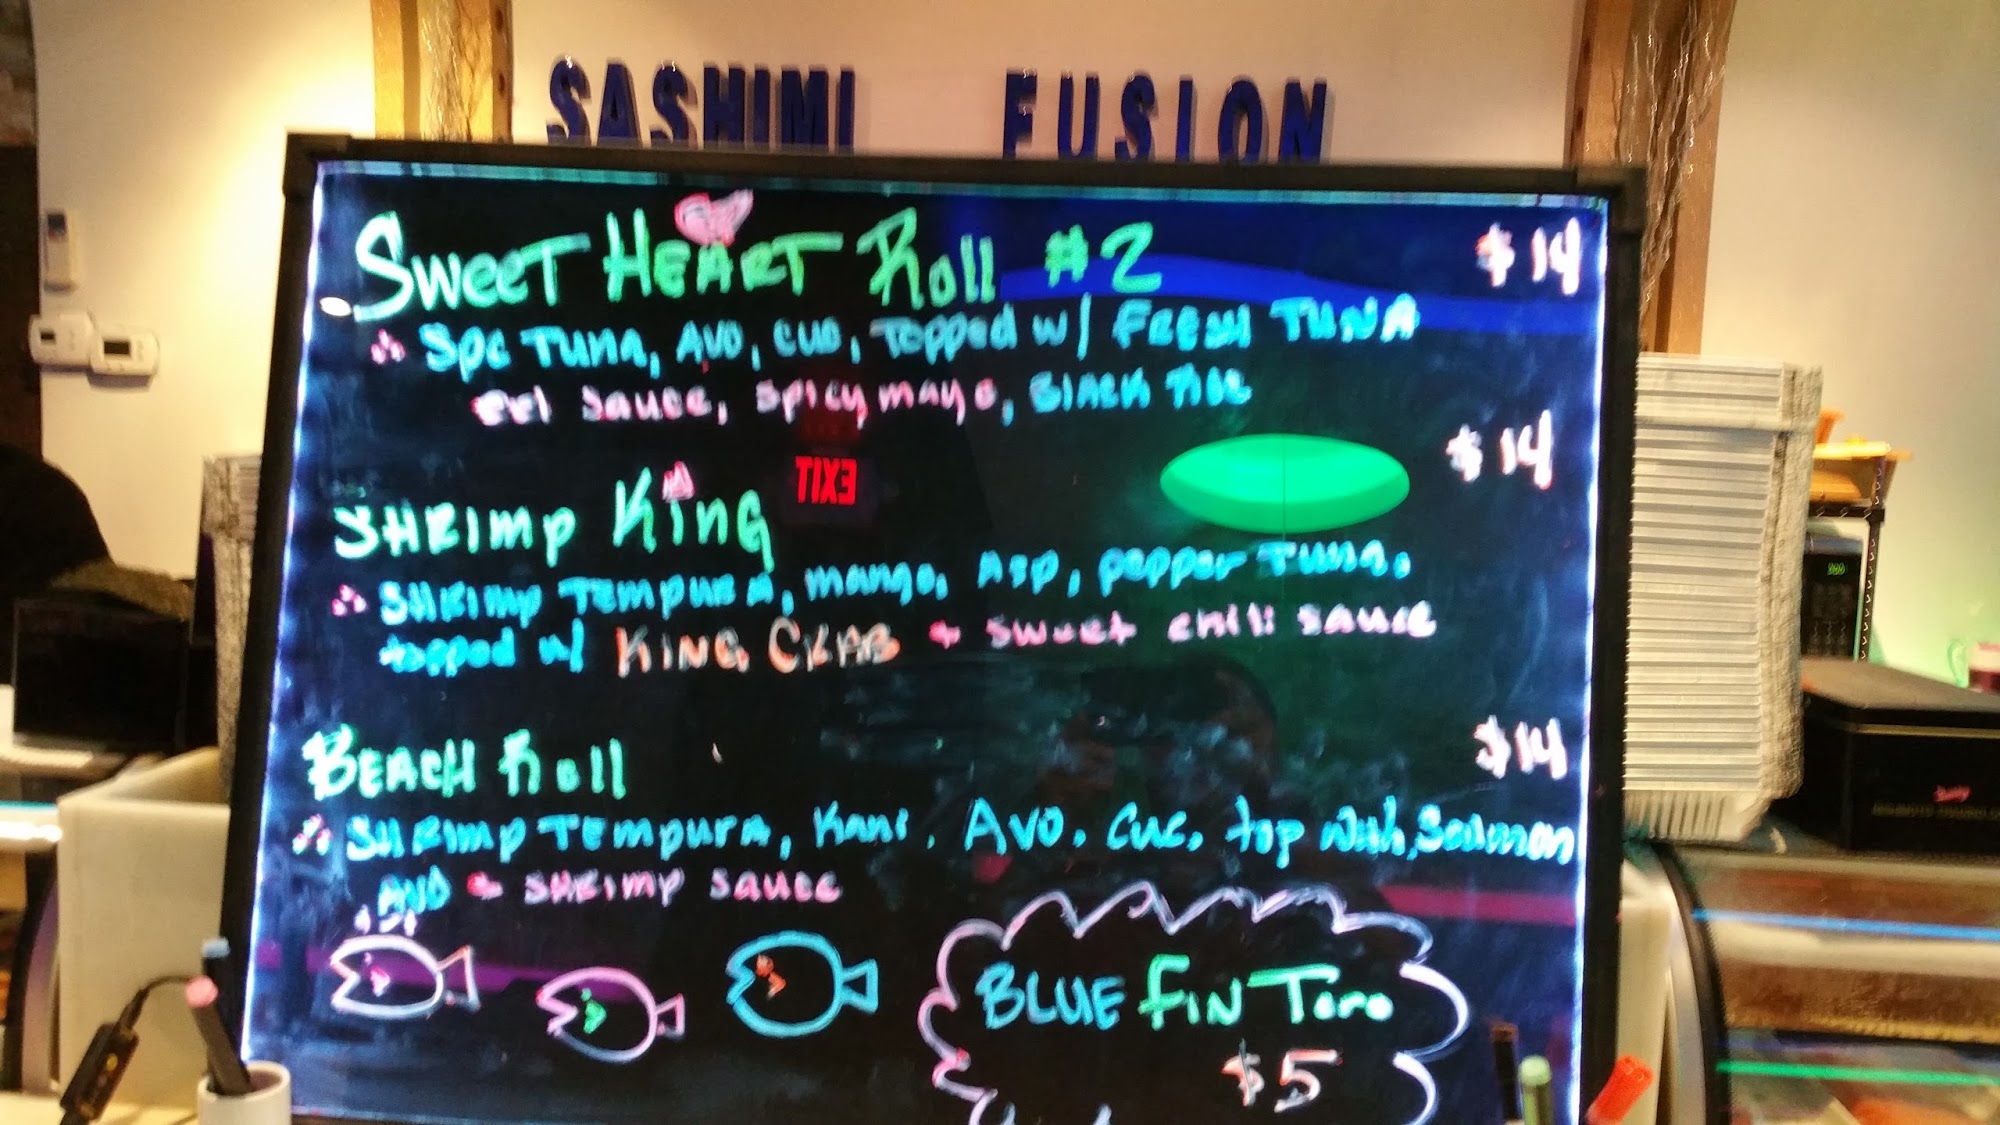 SASHIMI FUSION
SWEET HEART Roll #2 $14
SPC TUNA, AVO, CUC, TOPPED W/ FRESH TUNA
eel sauce, spicy mayo, BLACK RICE
SHRIMP KING $14
EXIT
SHRIMP TEMPURA, mango, ASP, pepper TUNA,
topped w/ KING CRAB + sweet chili sauce
BEACH Roll $14
SHRIMP TEMPURA, Kani, AVO, CUC, top with, Salmon
AVO + SHRIMP sauce
BLUE FIN Toro
$5